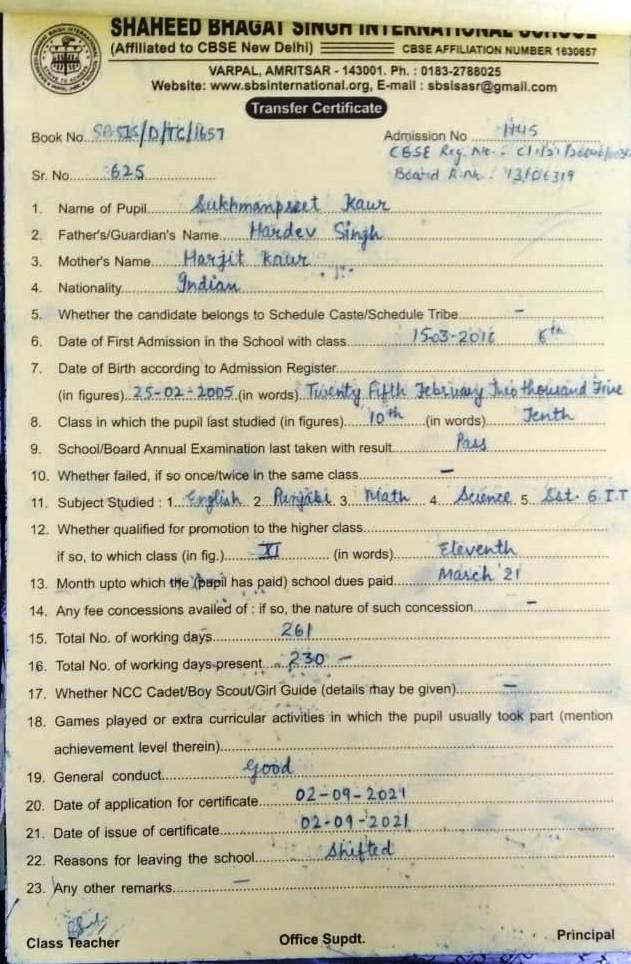 SHAHEED BHAGAT SINGH INTERNATIONAL SCHOOL
(Affiliated to CBSE New Delhi) CBSE AFFILIATION NUMBER 1630657
VARPAL, AMRITSAR - 143001. Ph. : 0183-2788025
Website: www.sbsinternational.org, E-mail : sbsisasr@gmail.com
Transfer Certificate
Book No. SBSIS/D/TC/1657 Admission No 1145
CBSE Reg. No. :-
Sr. No. 625 Board R.No. : 13/06319
1. Name of Pupil Sukhmanpreet Kaur
2. Father's/Guardian's Name Hardev Singh
3. Mother's Name Harjit Kaur
4. Nationality Indian
5. Whether the candidate belongs to Schedule Caste/Schedule Tribe -
6. Date of First Admission in the School with class 15-03-2016 6th
7. Date of Birth according to Admission Register
(in figures) 25-02-2005 (in words) Twenty Fifth February Two thousand Five
8. Class in which the pupil last studied (in figures) 10th (in words) Tenth
9. School/Board Annual Examination last taken with result Pass
10. Whether failed, if so once/twice in the same class -
11. Subject Studied : 1. English 2. Punjabi 3. Math 4. Science 5. Sst. 6. I.T
12. Whether qualified for promotion to the higher class
if so, to which class (in fig.) XI (in words) Eleventh
13. Month upto which the (pupil has paid) school dues paid March '21
14. Any fee concessions availed of : if so, the nature of such concession -
15. Total No. of working days 261
16. Total No. of working days present 230 -
17. Whether NCC Cadet/Boy Scout/Girl Guide (details may be given) -
18. Games played or extra curricular activities in which the pupil usually took part (mention
achievement level therein)
19. General conduct Good
20. Date of application for certificate 02-09-2021
21. Date of issue of certificate 02-09-2021
22. Reasons for leaving the school Shifted
23. Any other remarks -
Class Teacher Office Supdt. Principal